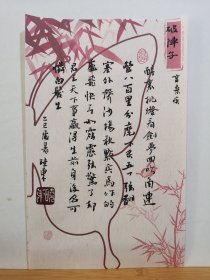 破陣子
辛棄疾
醉裏挑燈看劍夢回吹角連
營八百里分麾下炙五十弦翻
塞外聲沙場秋點兵馬作的
盧飛快弓如霹靂弦驚了卻
君王天下事贏得生前身後名可
憐白髮生
乙巳